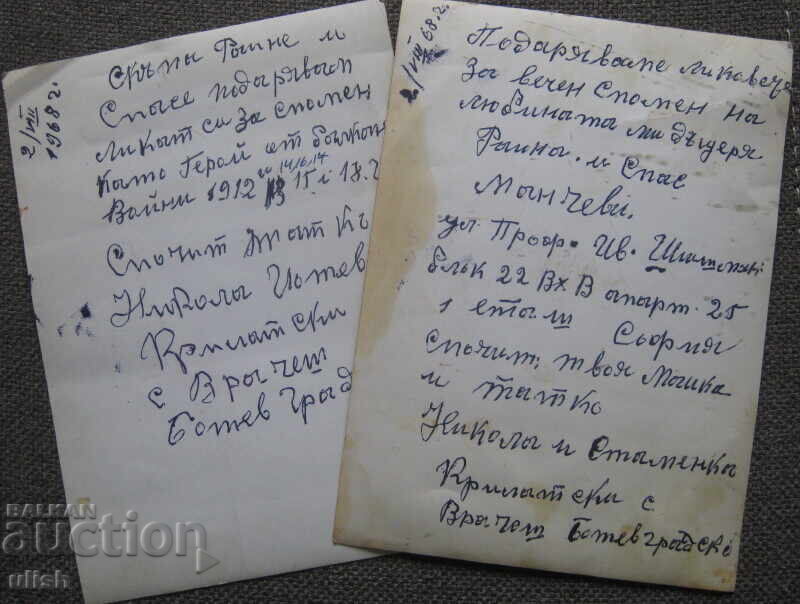 2/VIII
1968 г.
Скъпи Раине и
Спасе подарявам
ликът си за спомен
като Герой от Балкан
Войни 1912 и 13 14/16.17 15 і 18. г
Спочит татко
Никола Цотев
Крилатски
с Врачеш
Ботевград
2/VIII 68 г.
Подаряваме ликовече
за вечен спомен на
любината ми дъщеря
Раина и Спас
Манчеви,
ул. Проф. Ив. Шишман
блък 22 Вх В апарт. 25
1 етаж София
спочит, твоя Мaйка
и татко
Никола и Стаменка
Крилатски с
Врачеш Ботевградско
BALKAN
auction
ulish